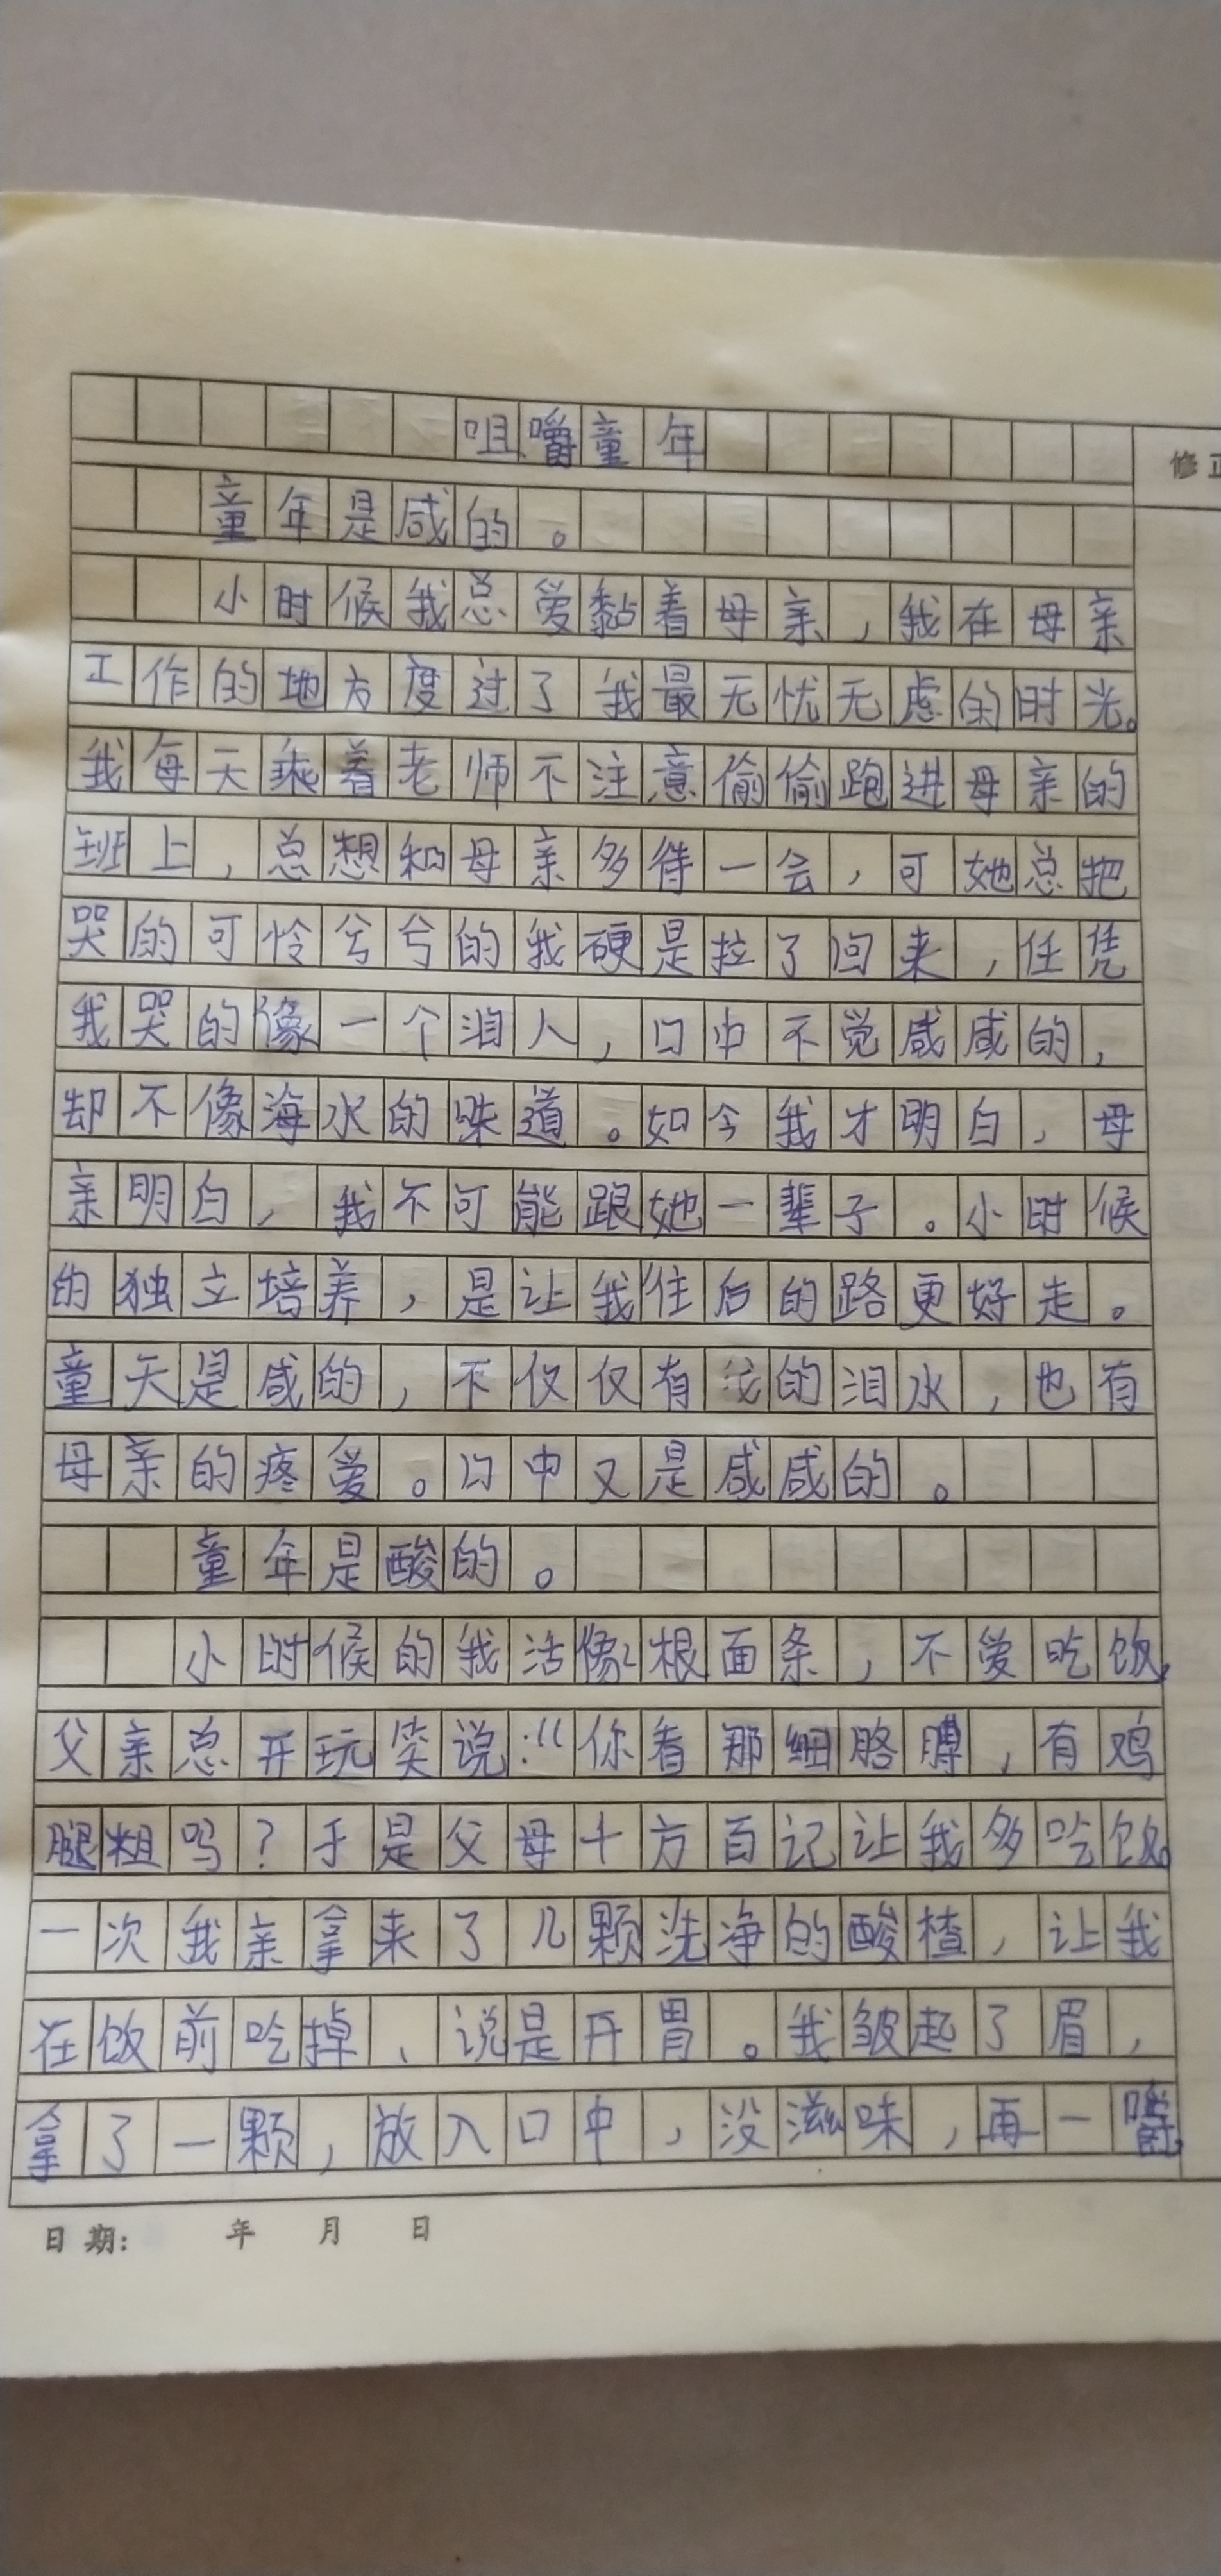 咀嚼童年
修正
童年是咸的。
小时候我总爱黏着母亲,我在母亲
工作的地方度过了我最无忧无虑的时光。
我每天乘着老师不注意偷偷跑进母亲的
班上,总想和母亲多待一会,可她总把
哭的可怜兮兮的我硬是拉了回来,任凭
我哭的像一个泪人,口中不觉咸咸的,
却不像海水的味道。如今我才明白,母
亲明白,我不可能跟她一辈子。小时候
的独立培养,是让我往后的路更好走。
童天是咸的,不仅仅有我的泪水,也有
母亲的疼爱。口中又是咸咸的。
童年是酸的。
小时候的我活像根面条,不爱吃饭,
父亲总开玩笑说:“你看那细胳膊,有鸡
腿粗吗?于是父母十方百记让我多吃饭。
一次我亲拿来了几颗洗净的酸楂,让我
在饭前吃掉、说是开胃。我皱起了眉,
拿了一颗,放入口中,没滋味,再一嚼,
日期: 年 月 日